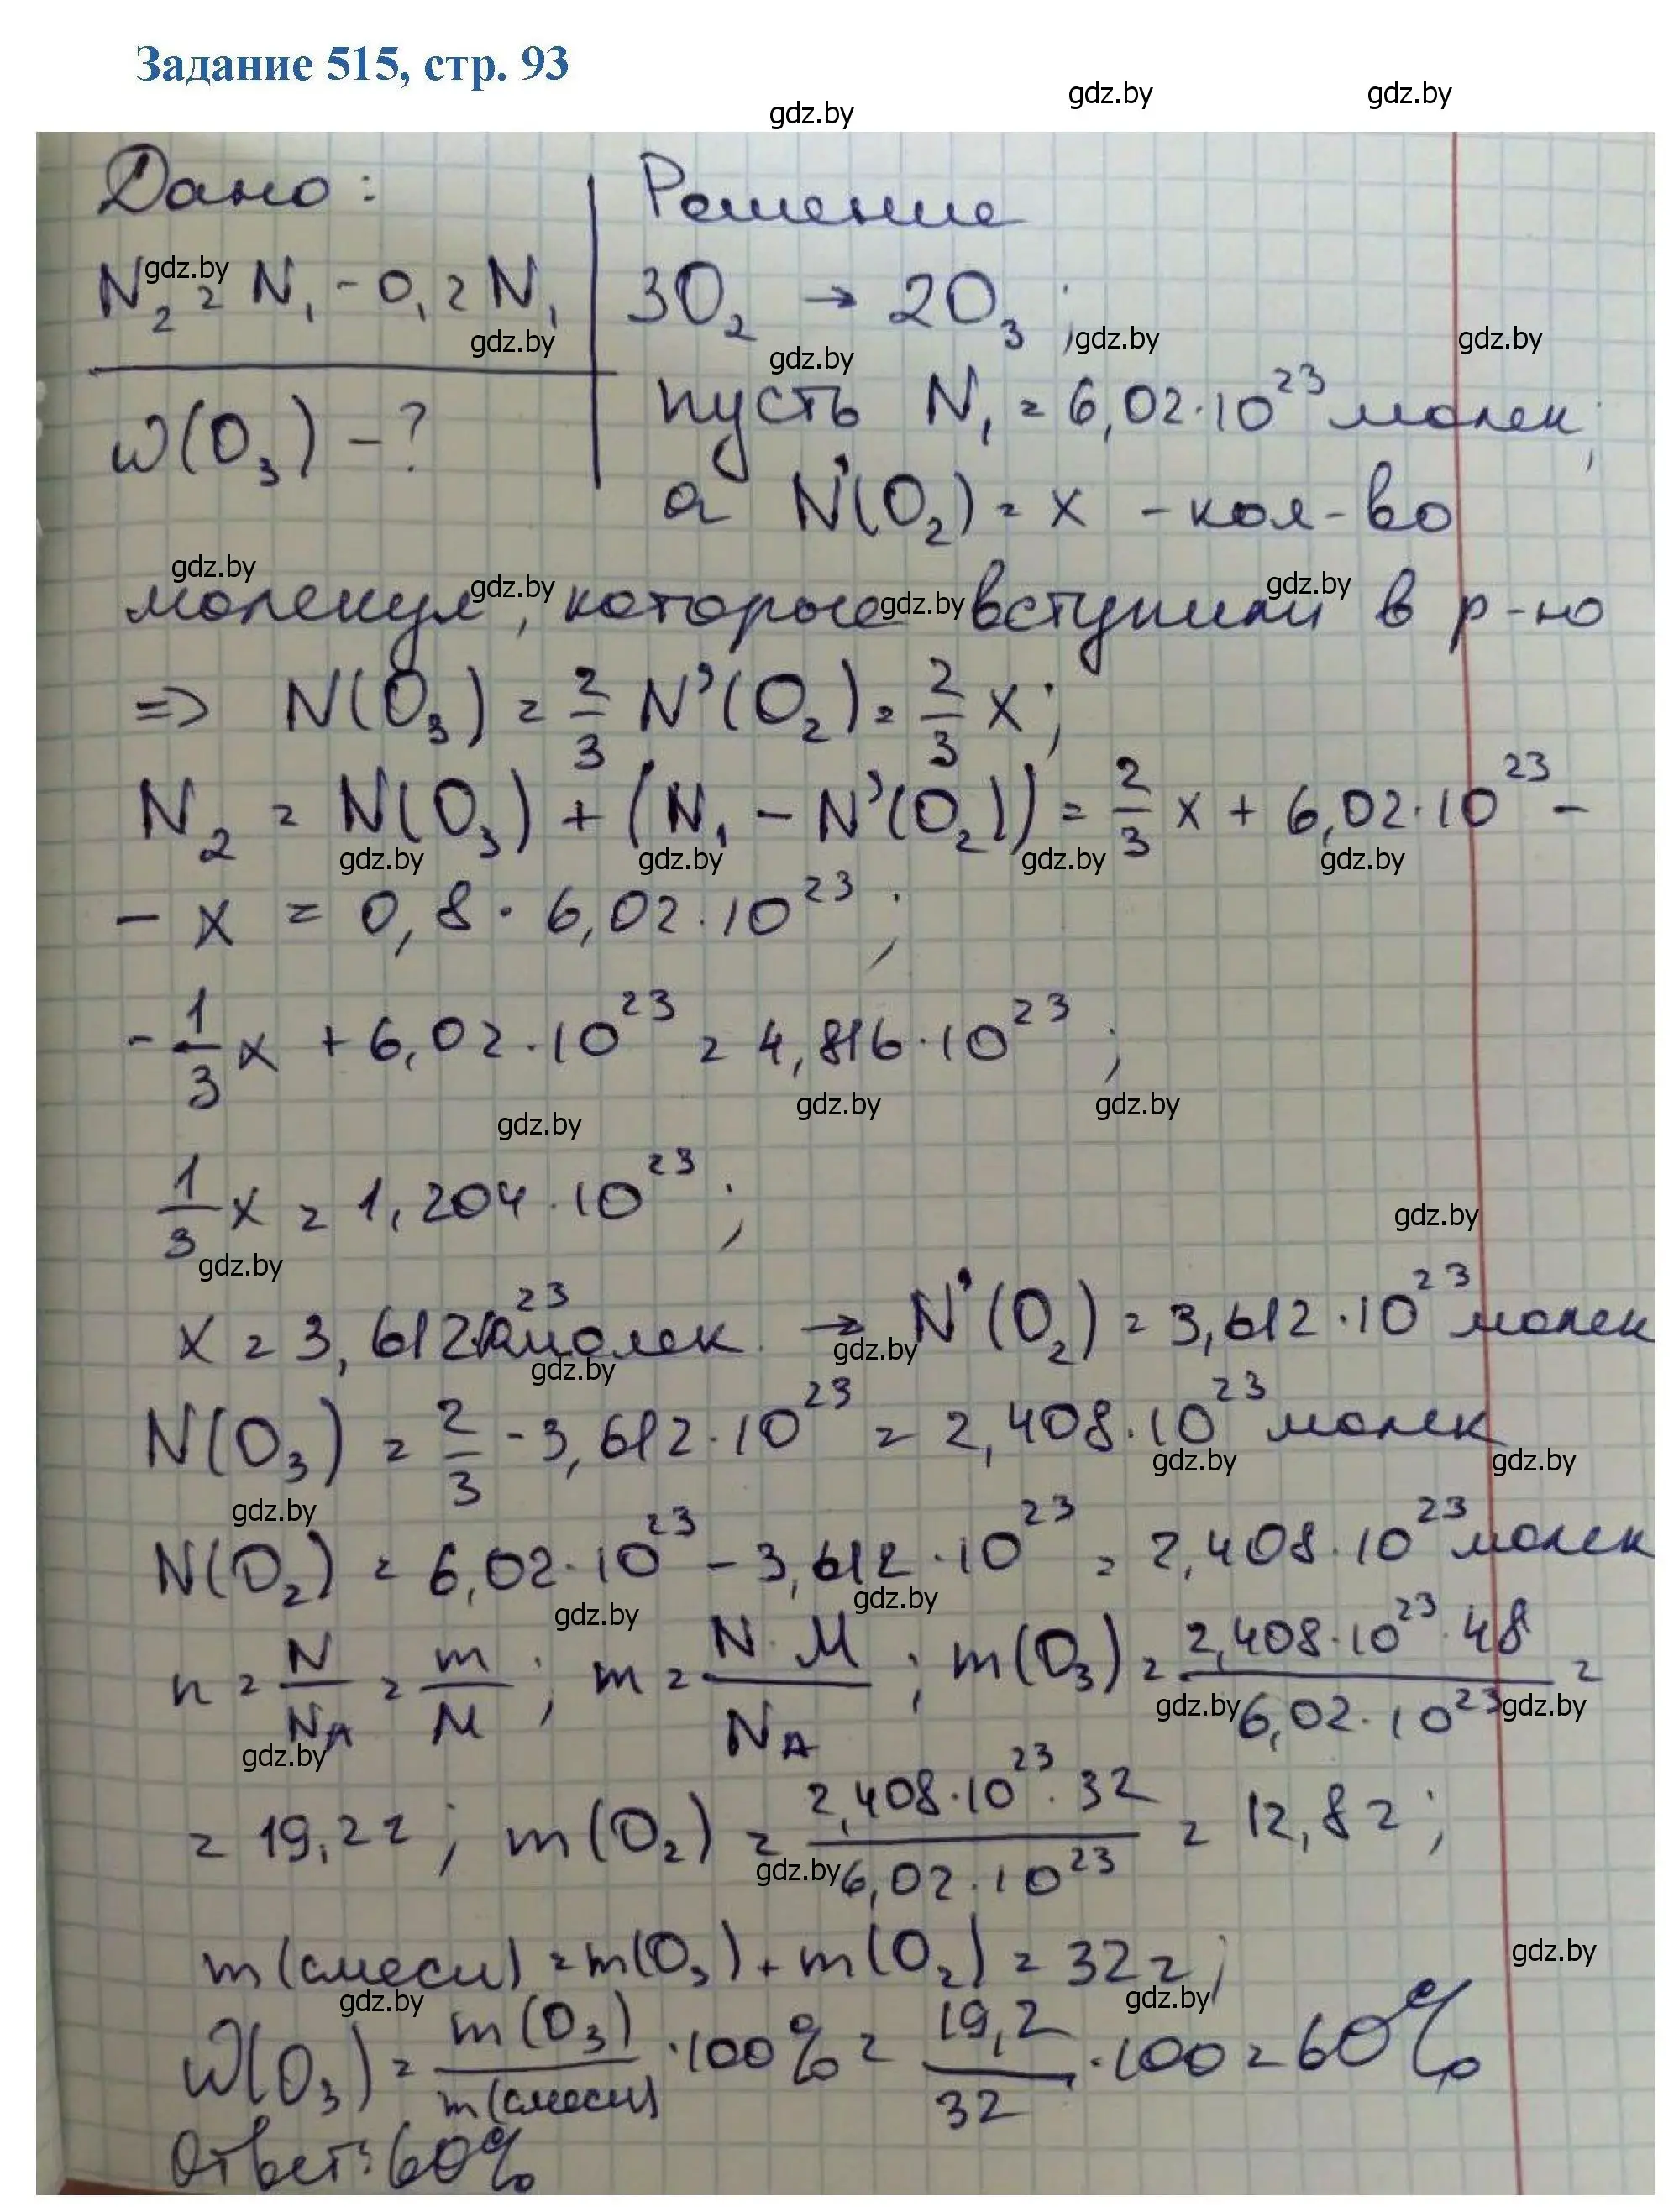 Задание 515, стр. 93
gdz.by gdz.by gdz.by
Дано: Решение
N₂ = N₁ - 0,2N₁ 3O₂ → 2O₃;
ω(O₃) - ? пусть N₁ = 6,02·10²³ молек;
а N'(O₂) = x - кол-во
молекул, которые вступили в р-ю
=> N(O₃) = 2/3 N'(O₂) = 2/3 x;
N₂ = N(O₃) + (N₁ - N'(O₂)) = 2/3 x + 6,02·10²³ -
- x = 0,8 · 6,02·10²³;
- 1/3 x + 6,02·10²³ = 4,816·10²³;
1/3 x = 1,204·10²³;
x = 3,612·10²³ молек. → N'(O₂) = 3,612·10²³ молек
N(O₃) = 2/3 · 3,612·10²³ = 2,408·10²³ молек
N(O₂) = 6,02·10²³ - 3,612·10²³ = 2,408·10²³ молек
n = N/N_A = m/M; m = N·M/N_A; m(O₃) = 2,408·10²³·48/6,02·10²³ =
= 19,2г; m(O₂) = 2,408·10²³·32/6,02·10²³ = 12,8г;
m(смеси) = m(O₃) + m(O₂) = 32г;
ω(O₃) = m(O₃)/m(смеси) · 100% = 19,2/32 · 100 = 60%
Ответ: 60%